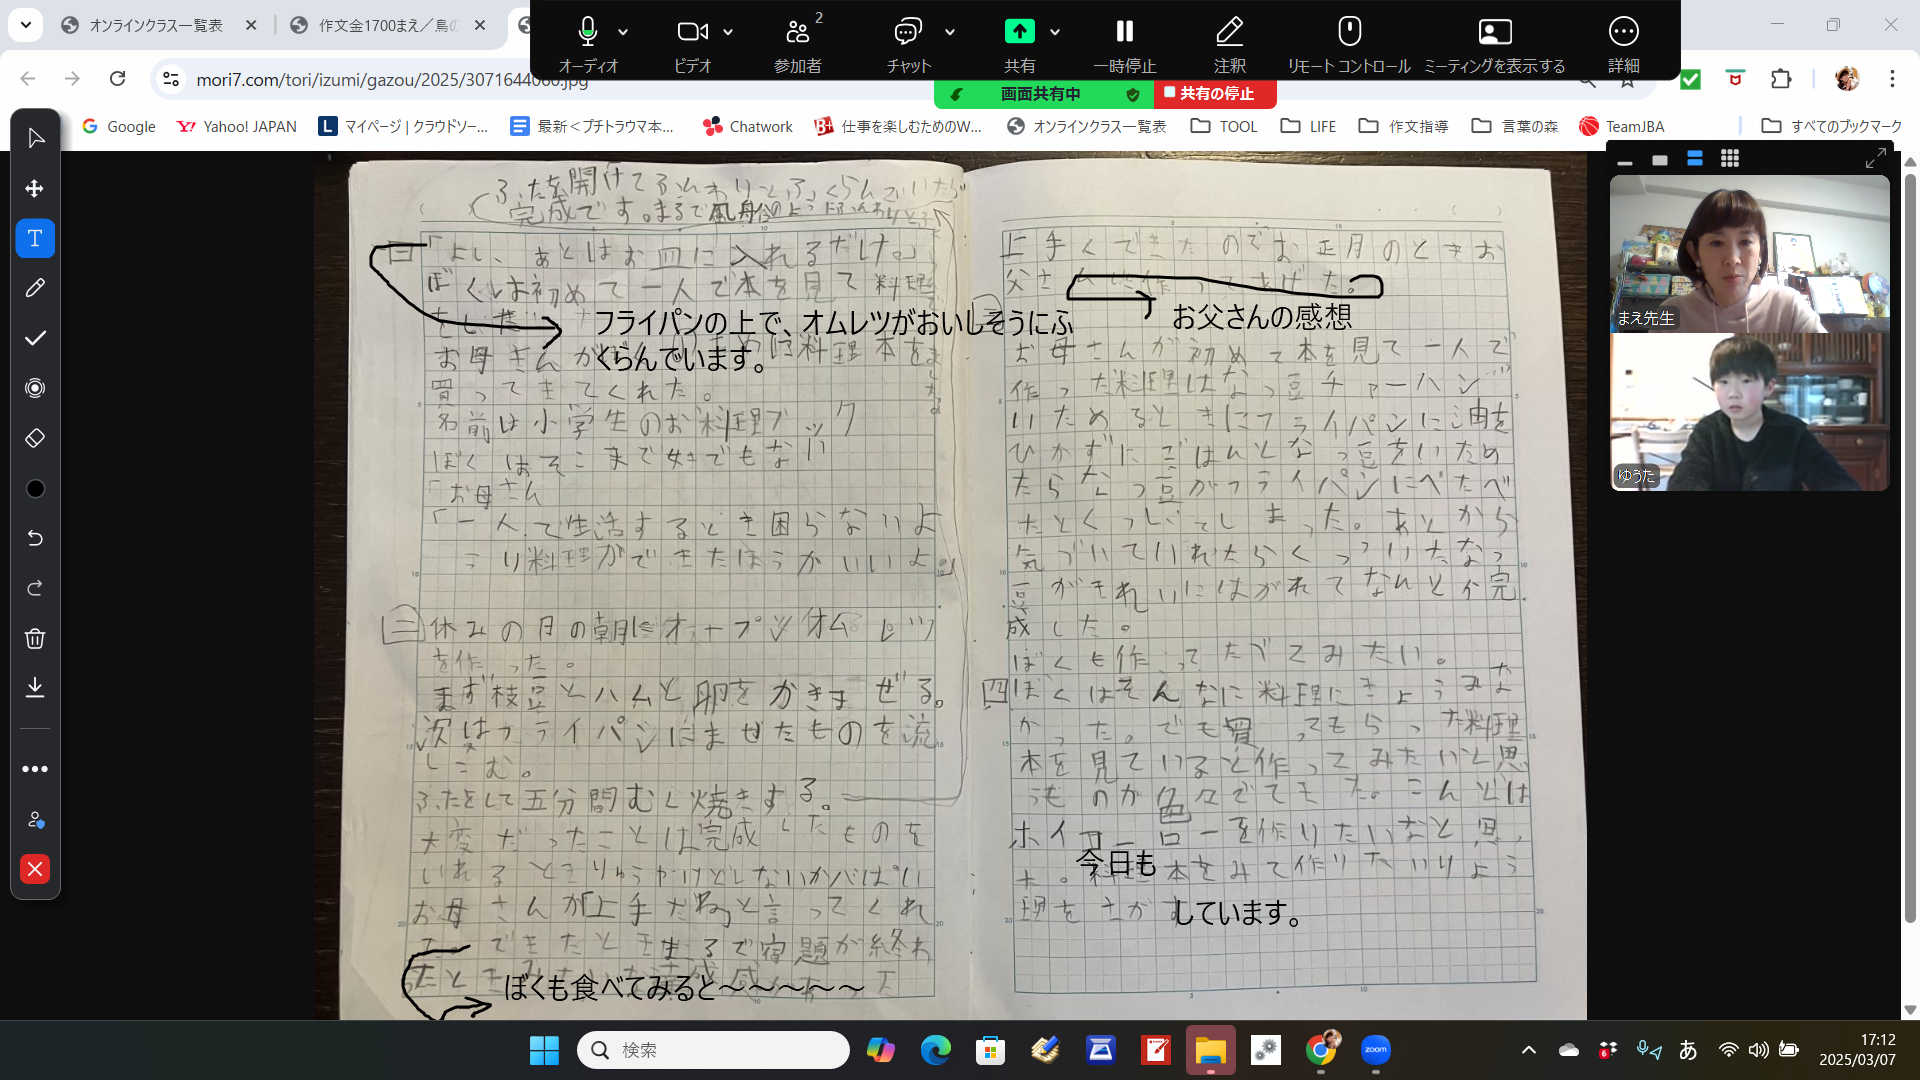 オンラインクラス一覧表
作文金1700まえ／鳥の
オーディオ
ビデオ
2
参加者
チャット
共有
一時停止
注釈
リモート コントロール
ミーティングを表示する
詳細
mori7.com/tori/izumi/gazou/2025/3071644060.jpg
画面共有中
共有の停止
Google
Yahoo! JAPAN
マイページ | クラウドソー...
最新＜プチトラウマ本...
Chatwork
仕事を楽しむためのW...
オンラインクラス一覧表
TOOL
LIFE
作文指導
言葉の森
TeamJBA
すべてのブックマーク
ふたを開けてふんわりとふくらんでいたら
完成です。まるで風船のようにふんわりと
「よし、あとはお皿に入れるだけ。」
ぼくは初めて一人で本を見て料理
フライパンの上で、オムレツがおいしそうにふ
くらんでいます。
お母さんが
料理本を
買ってきてくれた。
名前は小学生のお料理ブック
ぼくはそこまで好きでもない
「お母さん
「一人で生活するとき困らないよ
うり料理ができたほうがいいよ。」
三
休みの日の朝に
オムレツ
を作った。
まず枝豆とハムと卵をかきまぜる。
次はフライパンにまぜたものを流
しこむ。
ふたをして五分間むし焼きする。
大変だったことは完成したものを
いれるときりゅうやけどしないかパはい
お母さんが「上手だね」と言ってくれ
た。できたときまるで宿題が終わ
たときみたいな達成感があった
ぼくも食べてみると～～～～～～
上手くできたのでお正月のときお
父さんに作ってあげた。
お父さんの感想
お母さんが初めて本を見て一人で
作った料理はなっ豆チャーハン
いためるときにフライパンに油を
ひかずにごはんとなっ豆をいため
たらなっ豆がフライパンにべたべ
たとくっついてしまった。あとから
気づいていれたらくっついたなっ
豆がきれいにはがれてなんとか完
成した。
ぼくも作ってたべてみたい。
四
ぼくはそんなに料理にきょうみな
かった。でも買ってもらった料理
本を見ていると作ってみたいと思
うものが色々でてきた。こんどは
ホイコーローを作りたいなと思っ
た。料理本をみて作りたいりよう
今日も
理をさがす
しています。
まえ先生
ゆうた
検索
zoom
あ
17:12
2025/03/07